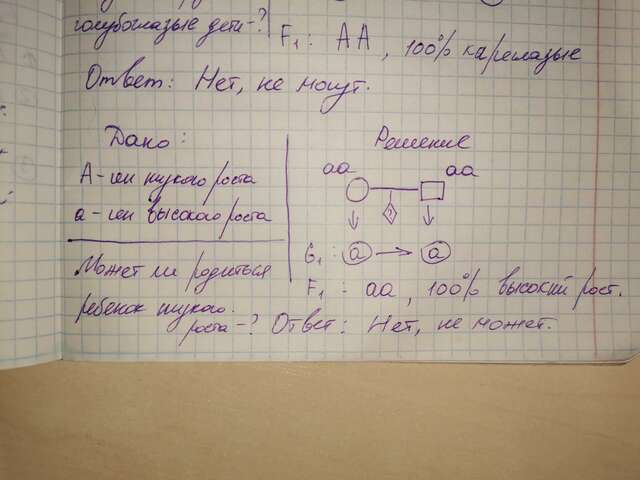 голубоглазые дети-?
F₁: AA, 100% кареглазые
Ответ: Нет, не могут.
Дано:
A-ген низкого роста
a-ген высокого роста
Может ли родиться
ребенок низкого
роста-?
Решение
aa aa
?
G₁: a → a
F₁: aa, 100% высокий рост.
Ответ: Нет, не может.